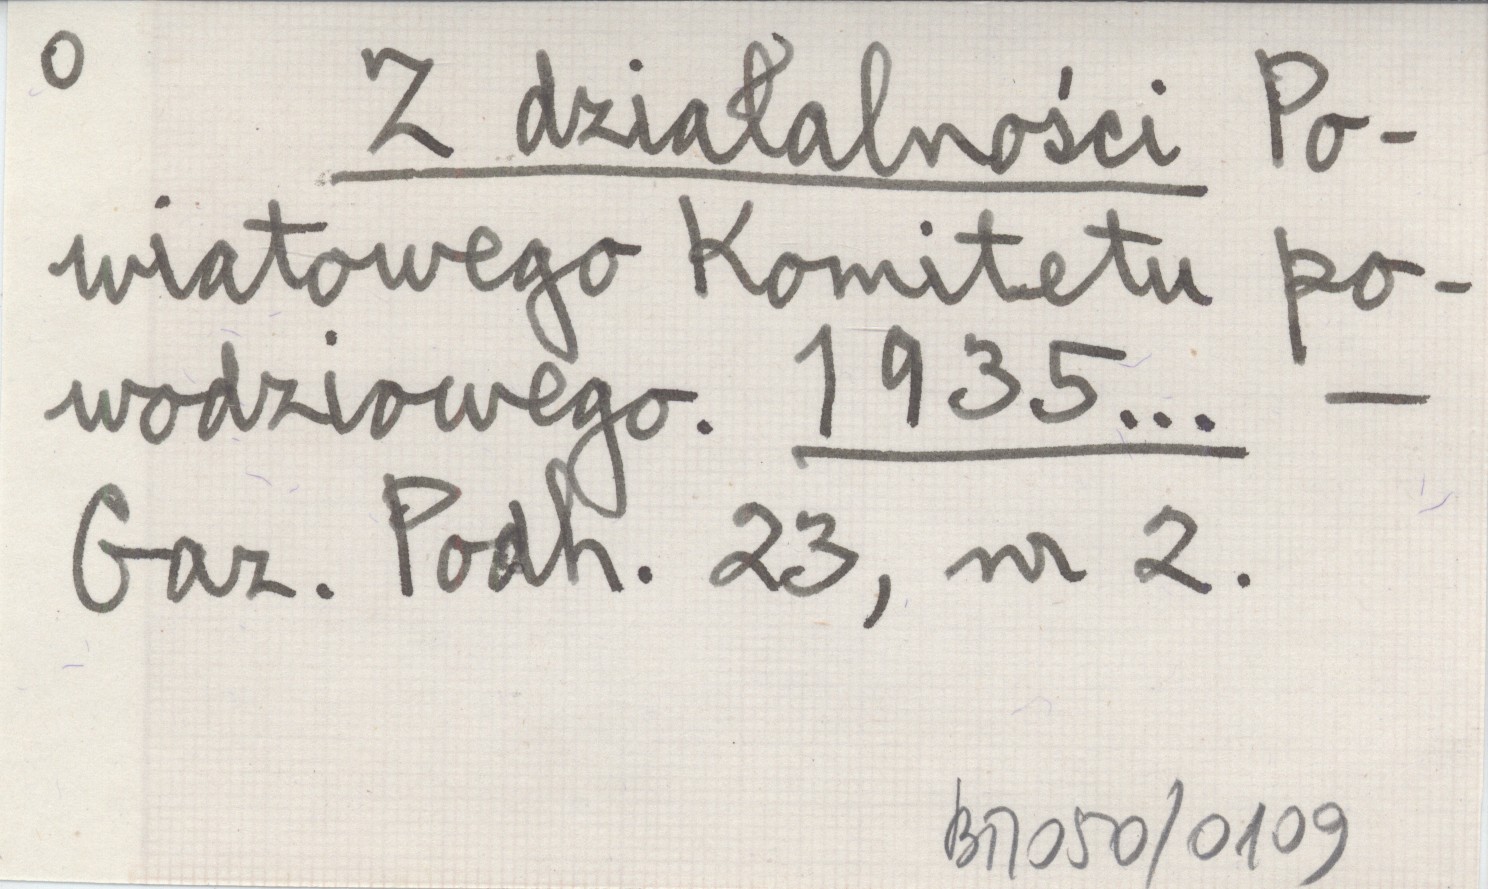 O
Z działalności Po-
wiatowego Komitetu po-
wodziowego. 1935... —
Gaz. Podh. 23, nr 2.
050/0109